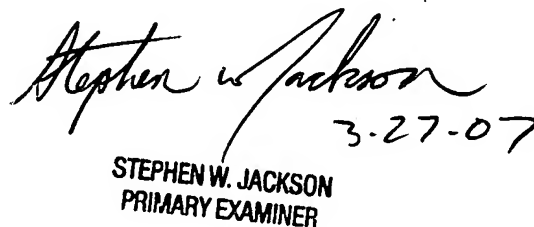 Stephen W Jackson
3-27-07
STEPHEN W. JACKSON
PRIMARY EXAMINER